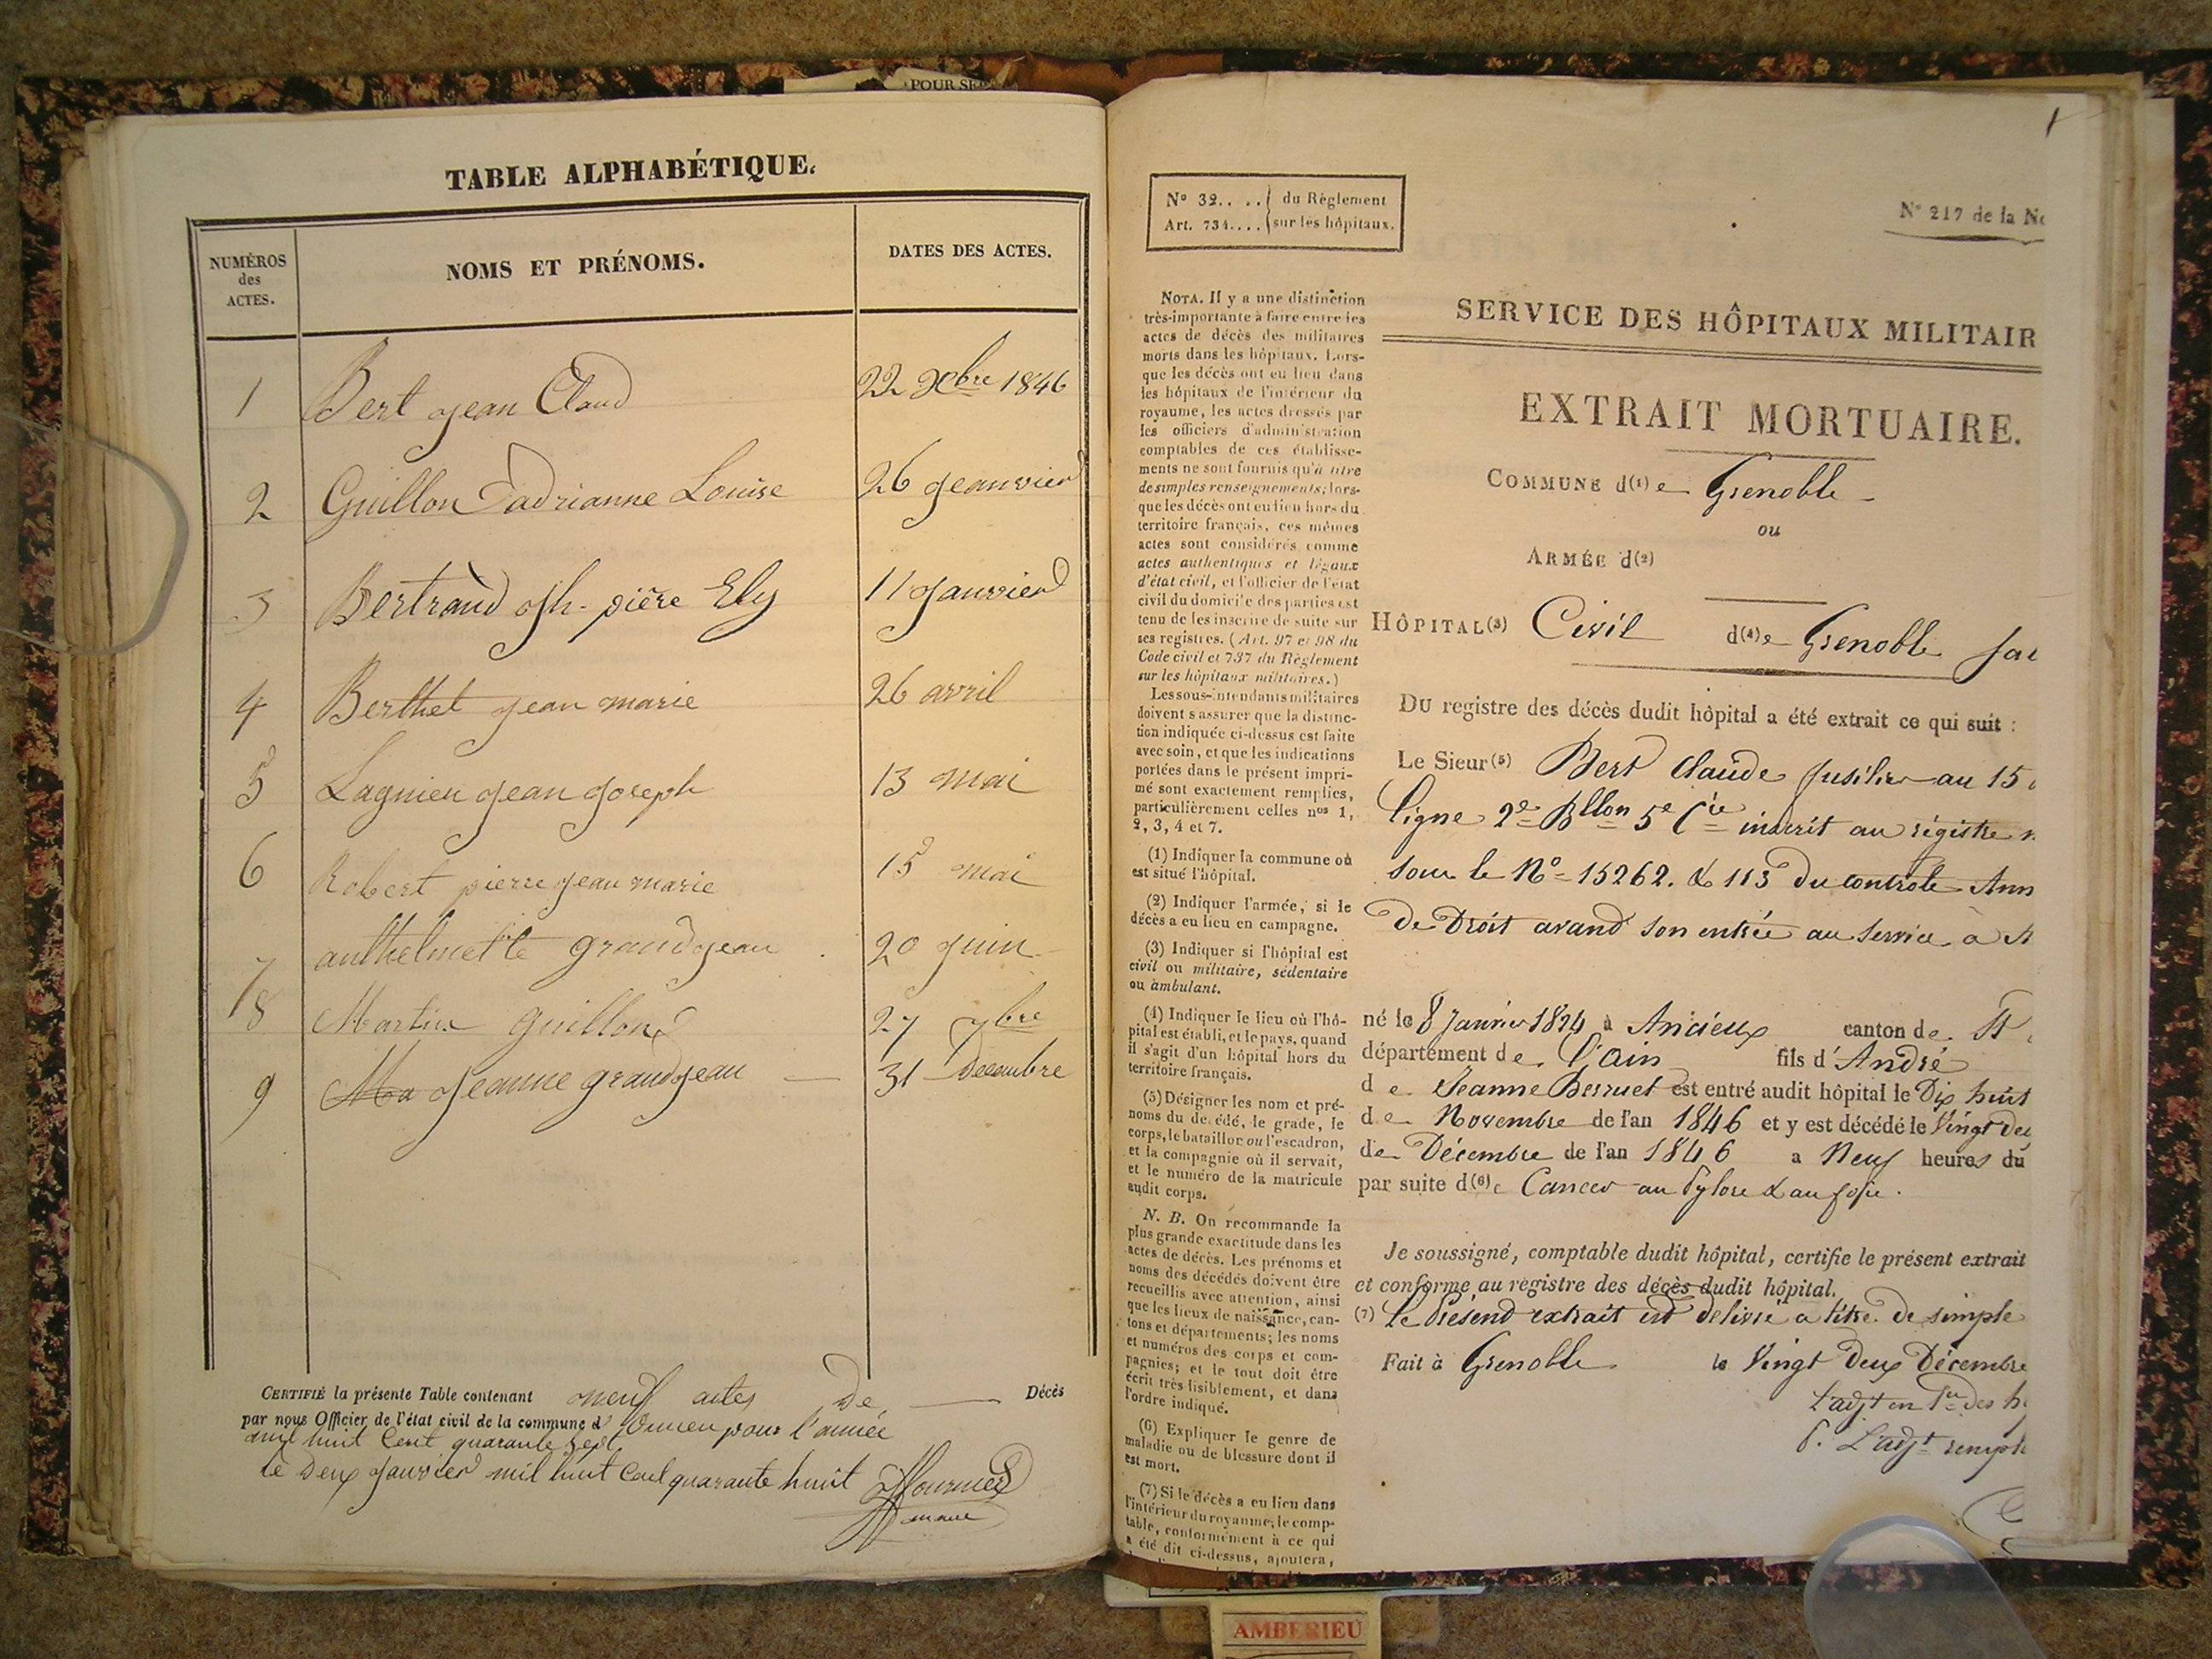 POUR SE
TABLE ALPHABÉTIQUE.
NUMÉROS
des
ACTES.
NOMS ET PRÉNOMS.
DATES DES ACTES.
1 Bert jean Claud 22 Xbre 1846
2 Guillon adrianne Louise 26 jeanvier
3 Bertrand jsh. pière Ely 11 janvier
4 Berthet jean marie 26 avril
5 Lagnieu jean joseph 13 mai
6 Robert pierre jean marie 15 mai
7 anthelmette grandjean 20 juin
8 Martin guillond 27 7bre
9 Ma jeanne grandjean 31 Decembre
CERTIFIÉ la présente Table contenant neuf actes de Décès
par nous Officier de l'état civil de la commune d' pour l'année
mil huit Cent quarante Sept
le Deux janvier mil huit Cent quarante huit
maire
1
N° 32.... du Règlement
Art. 734.... sur les hôpitaux.
N° 217 de la No
SERVICE DES HÔPITAUX MILITAIR
EXTRAIT MORTUAIRE.
COMMUNE d(1)e Grenoble
ou
ARMÉE d(2)
HÔPITAL(3) Civil d(4)e Grenoble
DU registre des décès dudit hôpital a été extrait ce qui suit :
Le Sieur(5) Bert Claude fusilier au 15
Ligne 2e Bllon 5e Cie inscrit au régistre
sous le N° 15262. & 113 du controle Ann
de Droit avand son entrée au service à
né le 8 Janvier 1824 à Ancieux canton de St
département de l'Ain fils d'André
de Jeanne Berruet est entré audit hôpital le Dix huit
de Novembre de l'an 1846 et y est décédé le Vingt Deu
de Décembre de l'an 1846 a Neuf heures du
par suite d(6)e Cancer au Pylore & au foie.
Je soussigné, comptable dudit hôpital, certifie le présent extrait
et conforme au registre des décès dudit hôpital.
(7) Le Présend extrait est délivré a titre de simple
Fait à Grenoble le Vingt Deux Décembre
L'adjt en
P. L'adjt
NOTA. Il y a une distinction
très-importante à faire entre les
actes de décès des militaires
morts dans les hôpitaux. Lors-
que les décès ont eu lieu dans
les hôpitaux de l'intérieur du
royaume, les actes dressés par
les officiers d'administration
comptables de ces établisse-
ments ne sont fournis qu'à titre
de simples renseignements; lors-
que les décès ont eu lieu hors du
territoire français, ces mêmes
actes sont considérés comme
actes authentiques et légaux
d'état civil, et l'officier de l'état
civil du domicile des parties est
tenu de les inscrire de suite sur
ses registres. (Art. 97 et 98 du
Code civil et 737 du Règlement
sur les hôpitaux militaires.)
Les sous-intendants militaires
doivent s'assurer que la distinc-
tion indiquée ci-dessus est faite
avec soin, et que les indications
portées dans le présent impri-
mé sont exactement remplies,
particulièrement celles nos 1,
2, 3, 4 et 7.
(1) Indiquer la commune où
est situé l'hôpital.
(2) Indiquer l'armée, si le
décès a eu lieu en campagne.
(3) Indiquer si l'hôpital est
civil ou militaire, sédentaire
ou ambulant.
(4) Indiquer le lieu où l'hô-
pital est établi, et le pays, quand
il s'agit d'un hôpital hors du
territoire français.
(5) Désigner les nom et pré-
noms du décédé, le grade, le
corps, le bataillon ou l'escadron,
et la compagnie où il servait,
et le numéro de la matricule
audit corps.
N. B. On recommande la
plus grande exactitude dans les
actes de décès. Les prénoms et
noms des décédés doivent être
recueillis avec attention, ainsi
que les lieux de naissance, can-
tons et départements; les noms
et numéros des corps et com-
pagnies; et le tout doit être
écrit très lisiblement, et dans
l'ordre indiqué.
(6) Expliquer le genre de
maladie ou de blessure dont il
est mort.
(7) Si le décès a eu lieu dans
l'intérieur du royaume, le comp-
table, conformément à ce qui
a été dit ci-dessus, ajoutera,
AMBERIEU